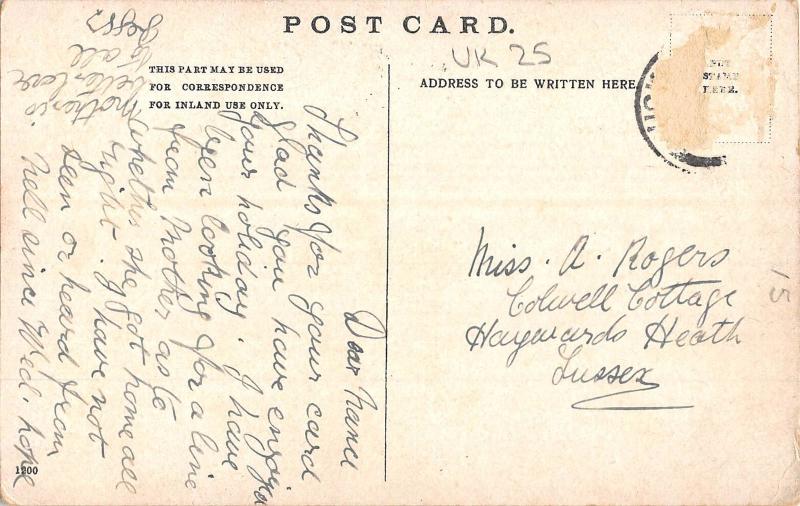 POST CARD.
UK 25
THIS PART MAY BE USED
FOR CORRESPONDENCE
FOR INLAND USE ONLY.
ADDRESS TO BE WRITTEN HERE
STAMP
HERE.
Dear
Thanks for your card
glad you have enjoyed
your holiday. I have
been looking for a line
from Mother as to
whether she got home all
right. I have not
seen or heard from
Nell since Wed. hope
Mother is
better love
to all
Miss. A. Rogers
Colwell Cottage
Haywards Heath
Sussex
15
1200